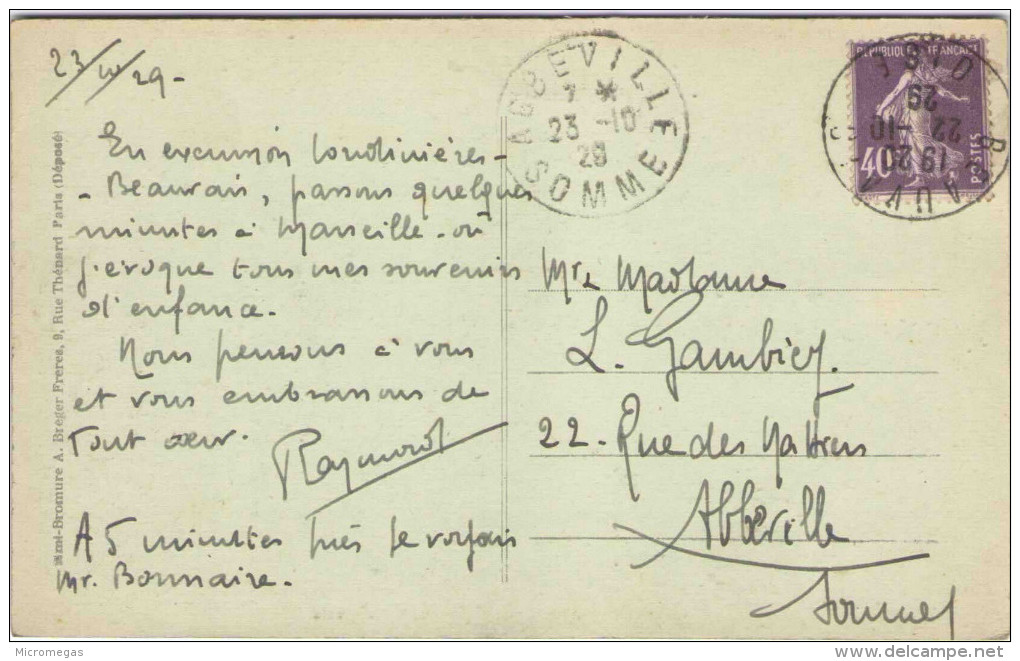 23/10/29-
En excursion Londinières-
-Beauvais, passons quelques
minutes à Marseille-où
j'évoque tous mes souvenirs
d'enfance.
Nous pensons à vous
et vous embrassons de
tout coeur.
Raymond
A 5 minutes près je voyais
Mr. Bonnaire.
Mr & Madame
L. Gambier.
22-Rue des
Abbeville
Somme
ABBEVILLE
7 *
23 -10
29
SOMME
REPUBLIQUE FRANÇAISE
40c
POSTES
BEAUVAIS
OISE
19 20
22 -10
29
Mimi-Bromure A. Breger Frères, 9, Rue Thénard Paris (Déposé)
Micromegas
www.delcampe.net